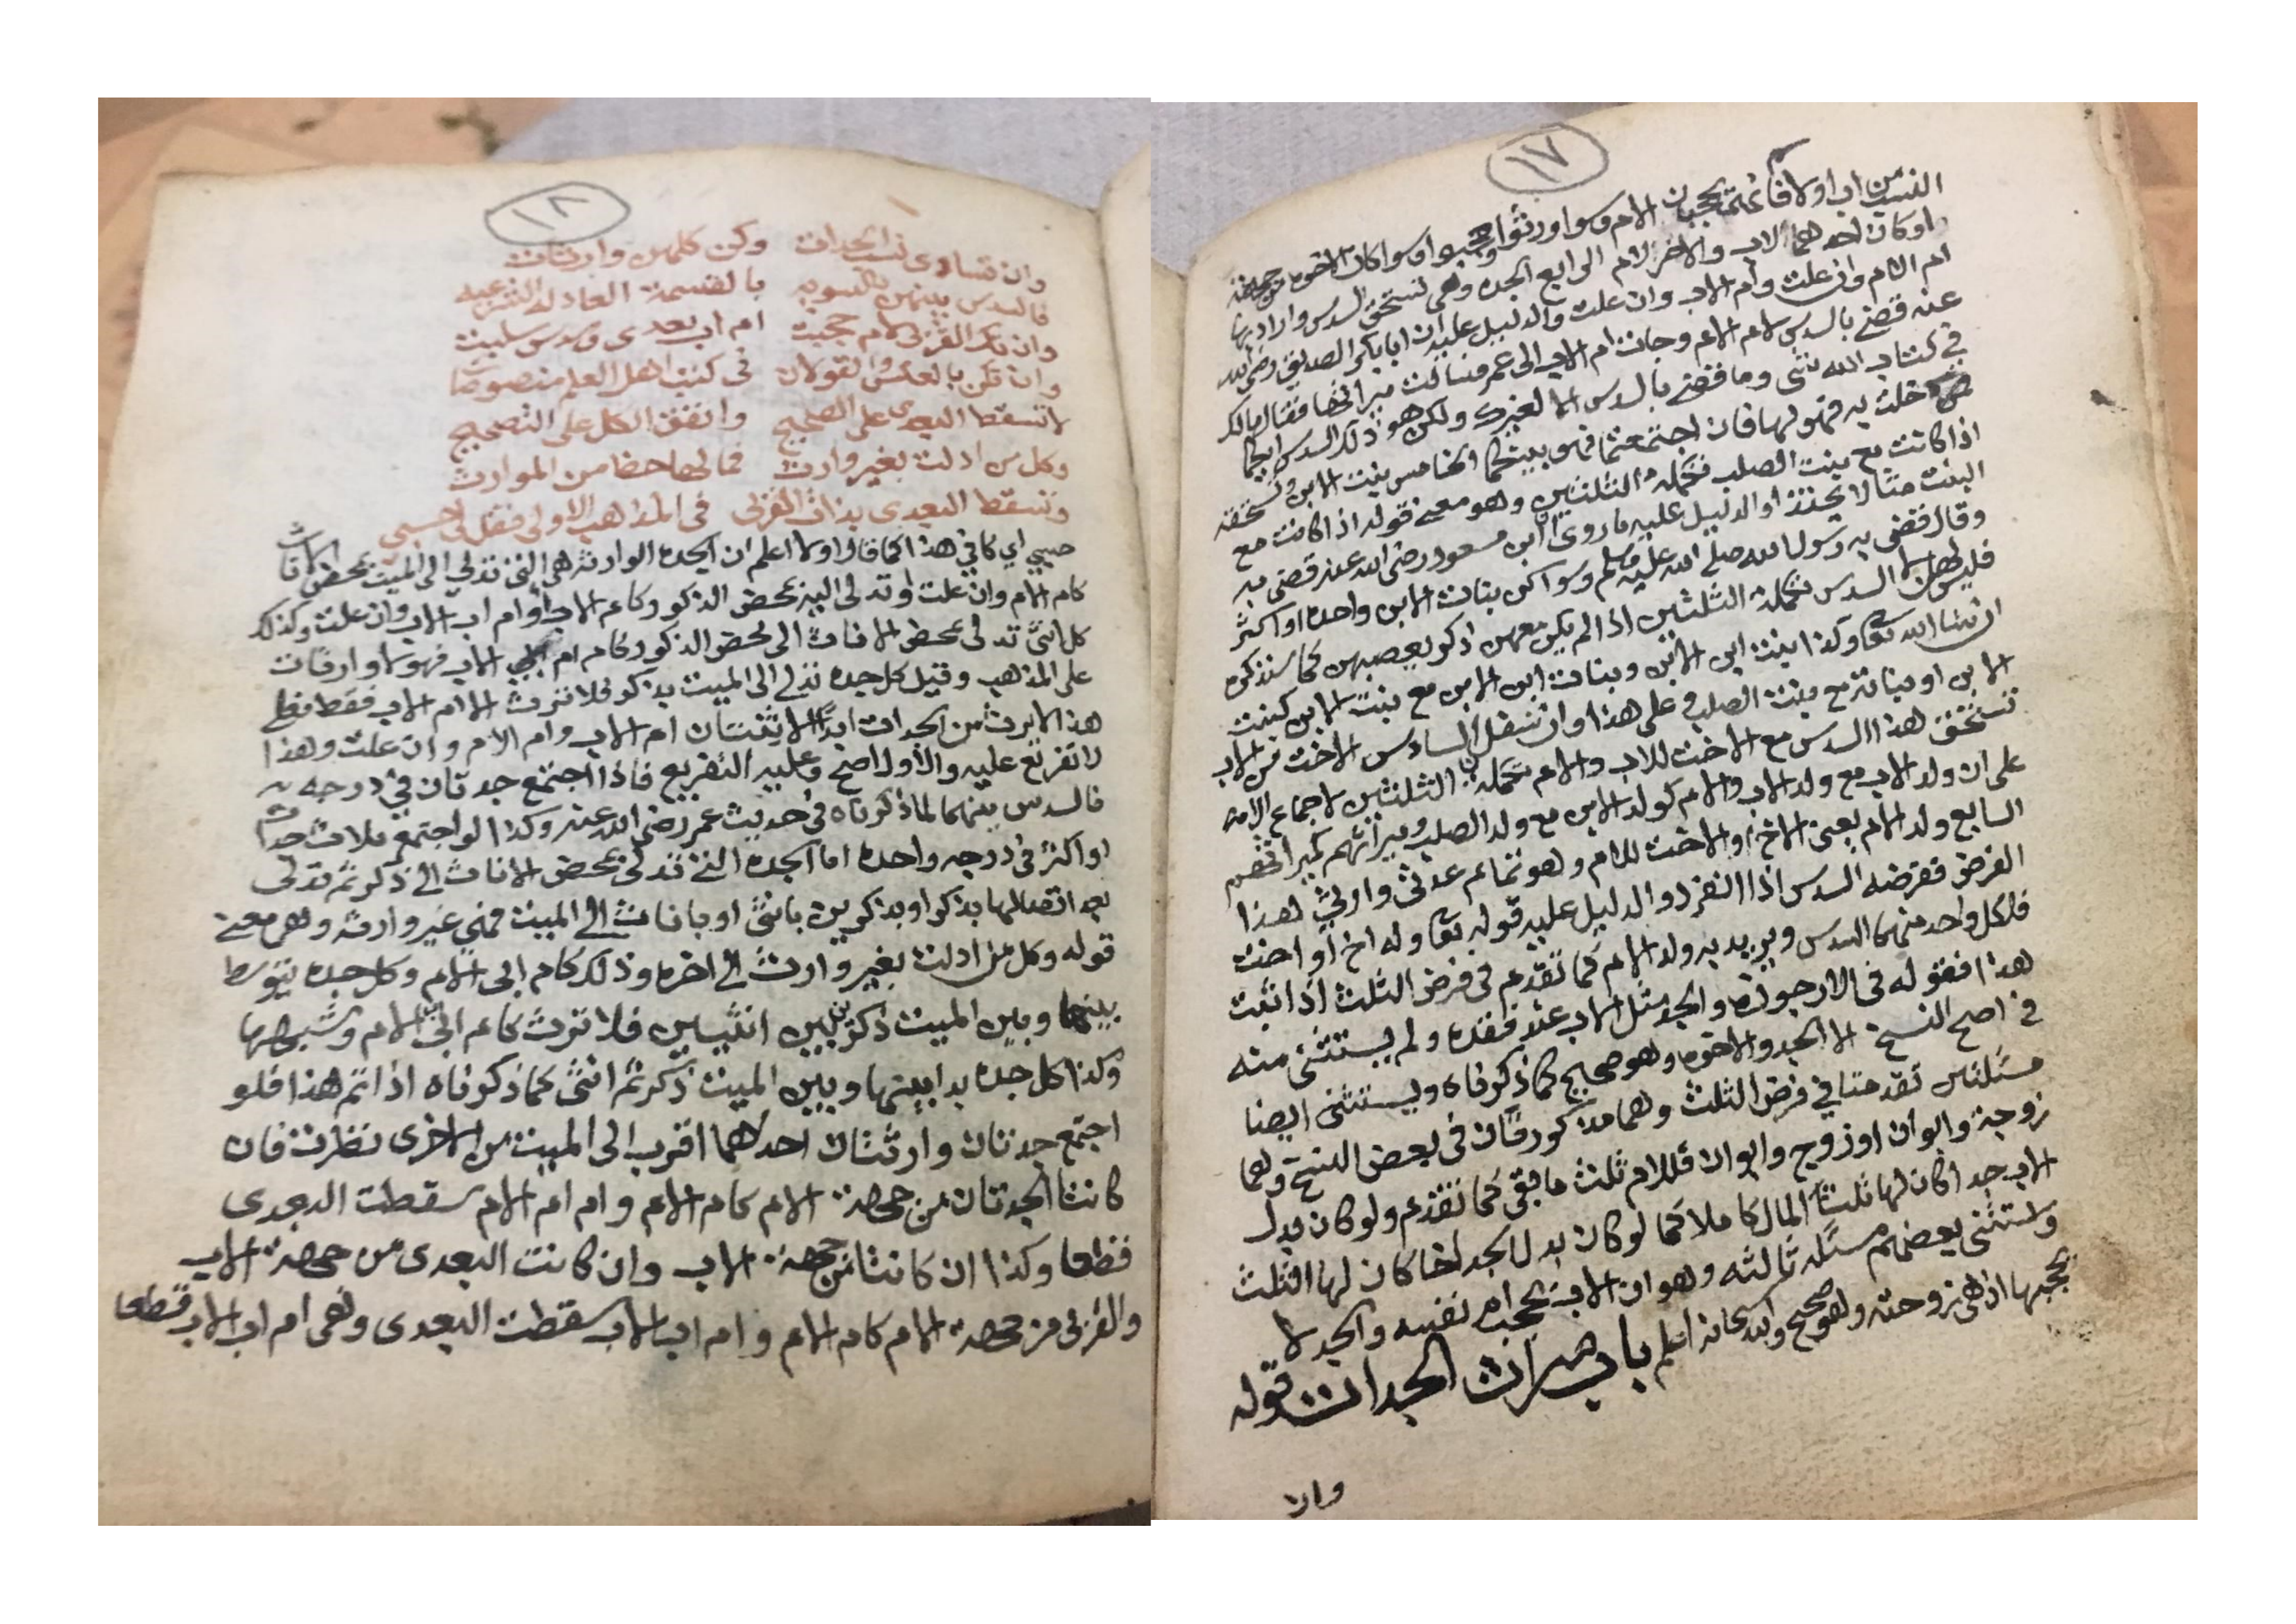 ١٧
النسب من اب اولا فانهم يحجبان الام وسوا ورثوا او حجبوا وسوا كان الاخوه من جهة
او كان احدهما لاب والاخر لام الرابع الجده وهي تستحق السدس واراد بها
ام الام وان علت وام الاب وان علت والدليل عليه ان ابا بكر الصديق رضي الله
عنه قضى بالسدس لام الام وجات ام الاب الى عمر فسالت ميراثها فقال مالك
في كتاب الله شي وما قضي بالسدس الا لغيرك ولكن هو ذلك السدس ايكما
خلت به فهو لها فان اجتمعتما فهو بينكما الخامس بنت الابن وتستحقه
اذا كانت مع بنت الصلب تكملة الثلثين وهو معنى قوله اذا كانت مع
البنت مثالا يحتذا والدليل عليه ما روى ابن مسعود رضي الله عنه قضى به
وقال قضى به رسول الله صلى الله عليه وسلم وسوا كن بنات الابن واحدة او اكثر
فليس لهن الا السدس تكملة الثلثين اذا لم يكن معهن ذكر يعصبهن كما سنذكره
ان شا الله تعا وكذا بنت ابن الابن وبنات ابن الابن مع بنت الابن كبنت
الابن او بناته مع بنت الصلب وعلى هذا وان تسفل السادس الاخت من الاب
تستحق هذا السدس مع الاخت للاب والام تكملة الثلثين لاجماع الامة
على ان ولد الاب مع ولد الاب والام كولد الابن مع ولد الصلب وميراثهم كميراثهم
السابع ولد الام يعني الاخ او الاخت للام وهو تمام عدتي وارث لهذا
الفرض ففرضه السدس اذا انفرد والدليل عليه قوله تعا وله اخ او اخت
فلكل واحد منهما السدس ويريد به ولد الام كما تقدم في فرض الثلث اذا ثبت
هذا فقوله في الارجوزة والجد مثل الاب عند فقده ولم يستثنى منه
في اصح النسخ الا الجد والاخوه وهو صحيح كما ذكرناه ويستثنى ايضا
مسئلتان تقدمتا في فرض الثلث وهما مذكورتان في بعض النسخ وهما
زوجة وابوان او زوج وابوان فللام ثلث ما بقي كما تقدم ولو كان بدل
الاب جد اكان لها ثلث المال كاملا كما لو كان بدل الجد اخا كان لها الثلث
واستثنى بعضهم مسئله ثالثه وهو ان الاب يحجب ام نفسه والجد لا
يحجبها اذ هي زوجته وهو صحيح والله سبحانه اعلم باب ميراث الجدات قوله
وان
١٨
وان تساوى نسب الجدات وكن كلهن وارثات
فالسدس بينهن بالسويه بالقسمة العادله الشرعيه
وان تكن القربى لام حجبت ام اب بعدى وسدس سلبت
وان تكن بالعكس فالقولان في كتب اهل العلم منصوصان
لا تسقط البعدى على الصحيح واتفق الكل على التصحيح
وكل من ادلت بغير وارث فما لها حظا من الموارث
وتسقط البعدى بذات القربى في المذهب الاولى فقل لي حسبي
حسبي اي كافي هذا كما قال اولا اعلم ان الجده الوارثه هي التي تدلي الى الميت بمحض الاناث
كام الام وان علت او تدلي اليه بمحض الذكور كام الاب او ام اب الاب وان علت وكذلك
كل انثى تدلي بمحض الاناث الى محض الذكور كام ام اب الاب فهولا وارثات
على المذهب وقيل كل جده تدلي الى الميت بذكر فلا ترث الا ام الاب فقط فعلى
هذا لا يرث من الجدات ابدا الا ثنتان ام الاب وام الام وان علت وهذا
لا تفريع عليه والاول اصح وعليه التفريع فاذا اجتمع جدتان في درجه
فالسدس بينهما لما ذكرناه في حديث عمر رضي الله عنه وكذا لو اجتمع ثلاث جدات
او اكثر في درجه واحدة اما الجده التي تدلي بمحض الاناث الى ذكر ثم تدلي
بعد اتصالها بذكر او بذكرين بانثى او باناث الى الميت فهي غير وارثه وهي معنى
قوله وكل من ادلت بغير وارث الى اخره وذلك كام ابي الام وكل جده يتوسط
بينها وبين الميت ذكر بين انثيين فلا ترث كام ابي الام وشبهها
وكذا كل جده بدا بينها وبين الميت ذكر ثم انثى كما ذكرناه اذا تم هذا فلو
اجتمع جدتان وارثتان احدهما اقرب الى الميت من الاخرى نظرت فان
كانتا الجدتان من جهة الام كام الام وام ام الام سقطت البعدى
قطعا وكذا ان كانتا من جهة الاب وان كانت البعدى من جهة الاب
والقربى من جهة الام كام الام وام اب الاب سقطت البعدى وهي ام اب الاب قطعا